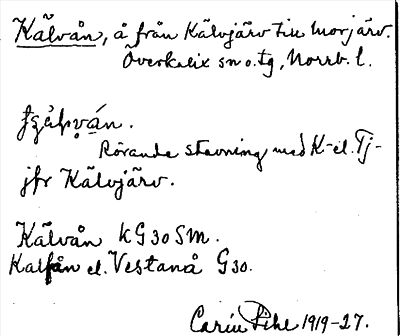 Kälvån, å från Kälvjärv till Morjärv.
Överkalix sn o. tg, Norrb. l.
Rörande stavning med K- el. Tj-
jfr Kälvjärv.
Kälvån KG30SM.
Kalfån el. Vestanå G30.
Carin Pihl 1919-27.